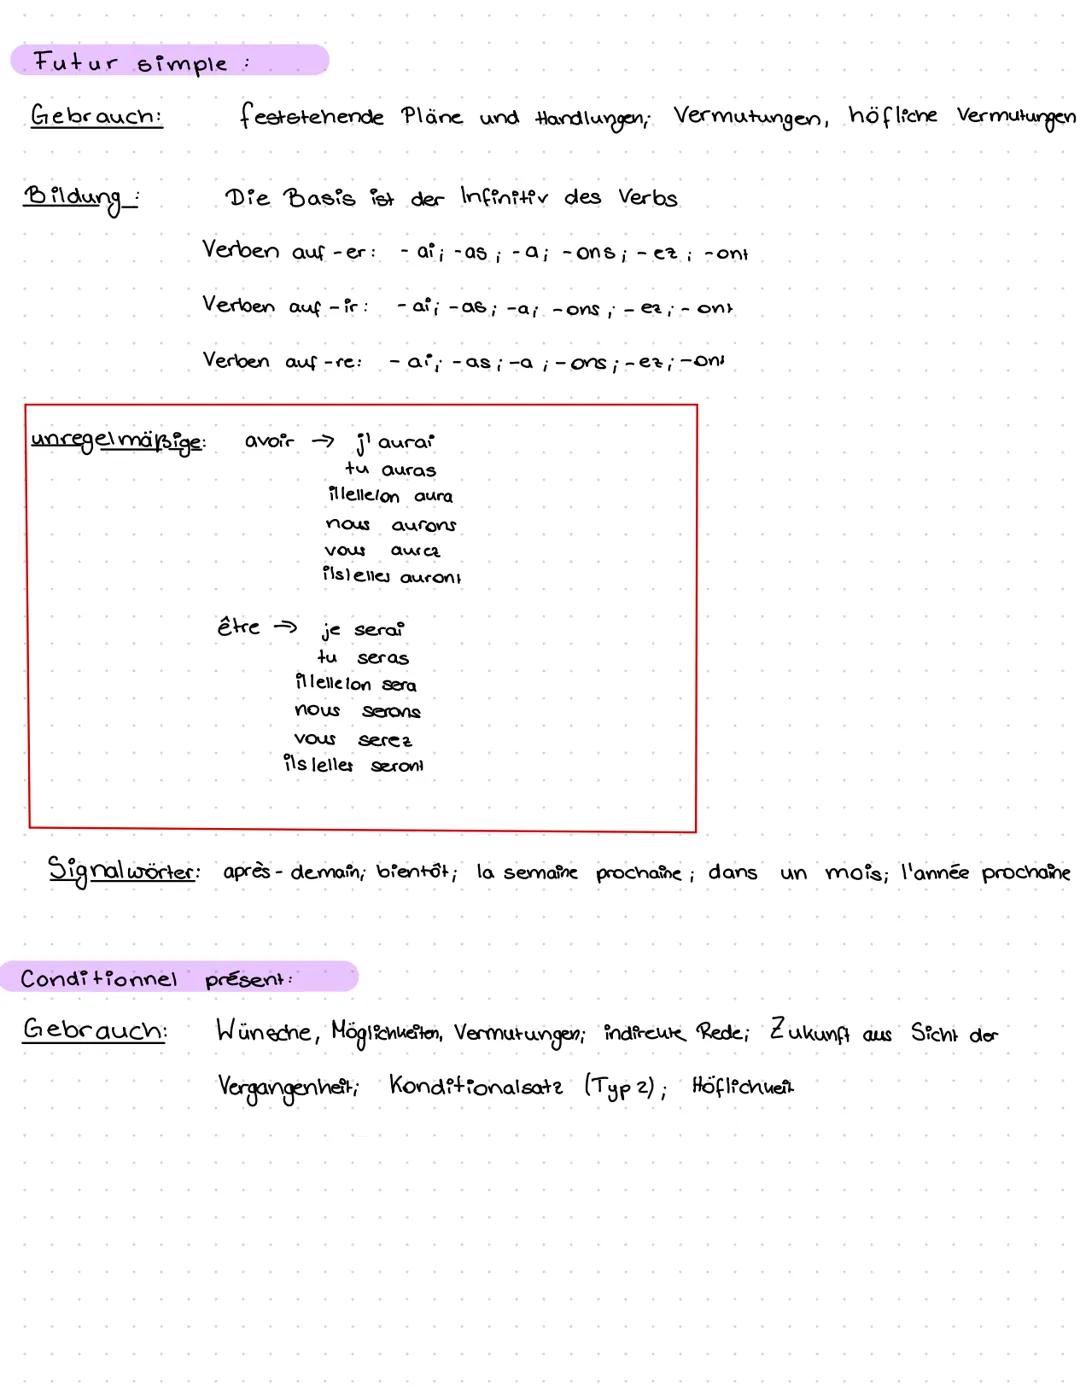 Futur simple :
Gebrauch: feststehende Pläne und Handlungen; Vermutungen, höfliche Vermutungen
Bildung : Die Basis ist der Infinitiv des Verbs
Verben auf -er: - ai; -as ; - a; - ons ; - ez ; - ont
Verben auf - ir: - ai; - as; -a; - ons ; - ez; - ont
Verben auf -re: - ai; - as ; -a ; - ons ; - ez ; - ont
unregelmäßige: avoir → j' aurai
tu auras
il/elle/on aura
nous aurons
vous aurez
ils/elles auront
être → je serai
tu seras
il/elle/on sera
nous serons
vous serez
ils/elles seront
Signalwörter: après - demain; bientôt; la semaine prochaine ; dans un mois; l'année prochaine
Conditionnel présent:
Gebrauch: Wünsche, Möglichkeiten, Vermutungen; indirekte Rede; Zukunft aus Sicht der
Vergangenheit; Konditionalsatz (Typ 2) ; Höflichkeit